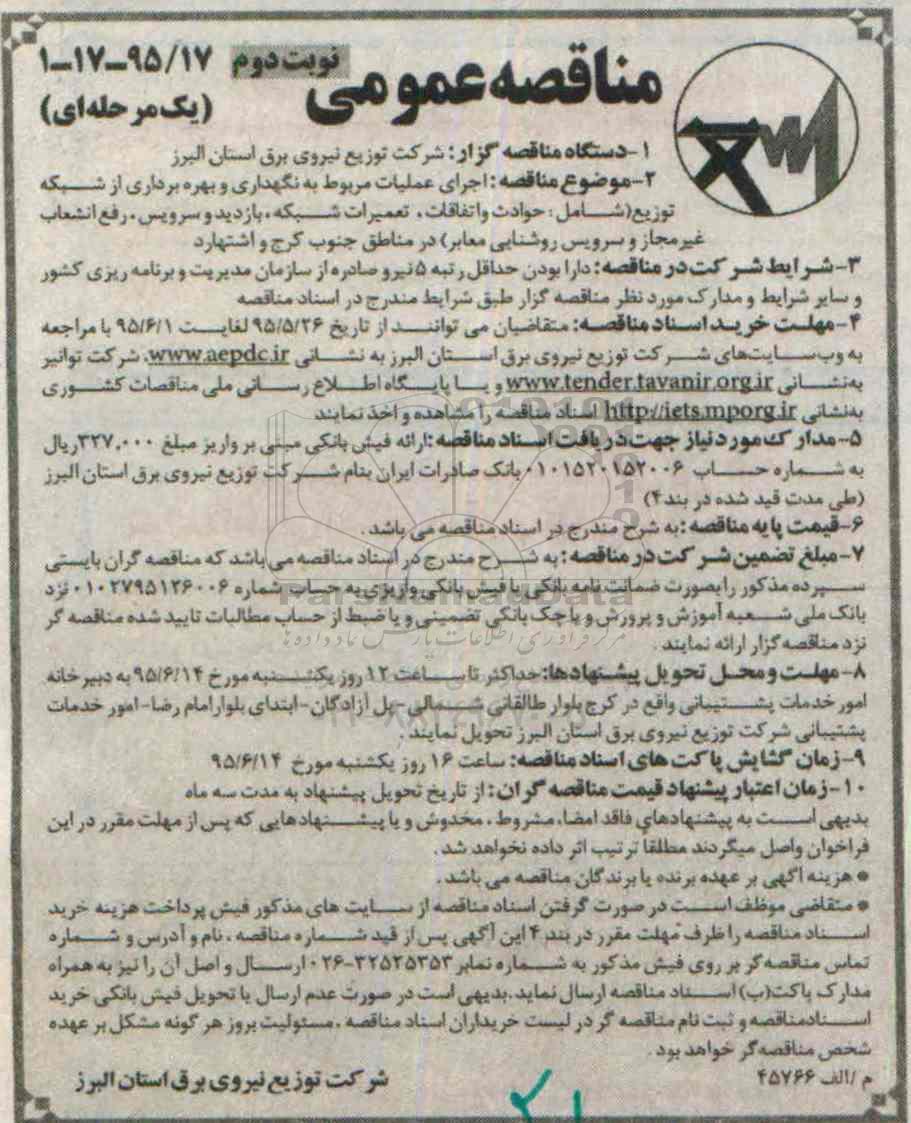 مناقصه عمومی
نوبت دوم
۱-۱۷-۹۵/۱۷
(یک مرحله‌ای)
۱-دستگاه مناقصه گزار: شرکت توزیع نیروی برق استان البرز
۲-موضوع مناقصه: اجرای عملیات مربوط به نگهداری و بهره برداری از شبکه
توزیع(شامل: حوادث واتفاقات، تعمیرات شبکه، بازدید و سرویس، رفع انشعاب
غیرمجاز و سرویس روشنایی معابر) در مناطق جنوب کرج و اشتهارد
۳-شرایط شرکت در مناقصه: دارا بودن حداقل رتبه ۵ نیرو صادره از سازمان مدیریت و برنامه ریزی کشور
و سایر شرایط و مدارک مورد نظر مناقصه گزار طبق شرایط مندرج در اسناد مناقصه
۴-مهلت خرید اسناد مناقصه: متقاضیان می توانند از تاریخ ۹۵/۵/۲۶ لغایت ۹۵/۶/۱ با مراجعه
به وب‌سایت‌های شرکت توزیع نیروی برق استان البرز به نشانی www.aepdc.ir، شرکت توانیر
به‌نشانی www.tender.tavanir.org.ir و یا پایگاه اطلاع رسانی ملی مناقصات کشوری
به‌نشانی http://iets.mporg.ir اسناد مناقصه را مشاهده و اخذ نمایند
۵-مدارک مورد نیاز جهت دریافت اسناد مناقصه: ارائه فیش بانکی مبنی بر واریز مبلغ ۳۲۷،۰۰۰ ریال
به شماره حساب ۰۱۰۱۵۲۰۱۵۲۰۰۶ بانک صادرات ایران بنام شرکت توزیع نیروی برق استان البرز
(طی مدت قید شده در بند ۴)
۶-قیمت پایه مناقصه: به شرح مندرج در اسناد مناقصه می باشد.
۷-مبلغ تضمین شرکت در مناقصه: به شرح مندرج در اسناد مناقصه می‌باشد که مناقصه گران بایستی
سپرده مذکور را بصورت ضمانت نامه بانکی یا فیش بانکی واریزی به حساب شماره ۰۱۰۲۷۹۵۱۲۶۰۰۶ نزد
بانک ملی شعبه آموزش و پرورش و یا چک بانکی تضمینی و یا ضبط از حساب مطالبات تایید شده مناقصه گر
نزد مناقصه گزار ارائه نمایند.
۸-مهلت و محل تحویل پیشنهادها: حداکثر تا ساعت ۱۲ روز یکشنبه مورخ ۹۵/۶/۱۴ به دبیرخانه
امور خدمات پشتیبانی واقع در کرج بلوار طالقانی شمالی-پل آزادگان-ابتدای بلوار امام رضا-امور خدمات
پشتیبانی شرکت توزیع نیروی برق استان البرز تحویل نمایند.
۹-زمان گشایش پاکت های اسناد مناقصه: ساعت ۱۶ روز یکشنبه مورخ ۹۵/۶/۱۴
۱۰-زمان اعتبار پیشنهاد قیمت مناقصه گران: از تاریخ تحویل پیشنهاد به مدت سه ماه
بدیهی است به پیشنهادهای فاقد امضا، مشروط، مخدوش و یا پیشنهادهایی که پس از مهلت مقرر در این
فراخوان واصل میگردند مطلقا ترتیب اثر داده نخواهد شد.
* هزینه آگهی بر عهده برنده یا برندگان مناقصه می باشد.
* متقاضی موظف است در صورت گرفتن اسناد مناقصه از سایت های مذکور فیش پرداخت هزینه خرید
اسناد مناقصه را ظرف مهلت مقرر در بند ۴ این آگهی پس از قید شماره مناقصه، نام و آدرس و شماره
تماس مناقصه‌گر بر روی فیش مذکور به شماره نمابر ۳۲۵۲۵۳۵۳-۰۲۶ ارسال و اصل آن را نیز به همراه
مدارک پاکت(ب) اسناد مناقصه ارسال نماید. بدیهی است در صورت عدم ارسال یا تحویل فیش بانکی خرید
اسناد مناقصه و ثبت نام مناقصه گر در لیست خریداران اسناد مناقصه، مسئولیت بروز هر گونه مشکل بر عهده
شخص مناقصه‌گر خواهد بود.
م /الف ۴۵۷۶۶
شرکت توزیع نیروی برق استان البرز
ParsNamadData
مرکز فرآوری اطلاعات پارس نماد داده ها